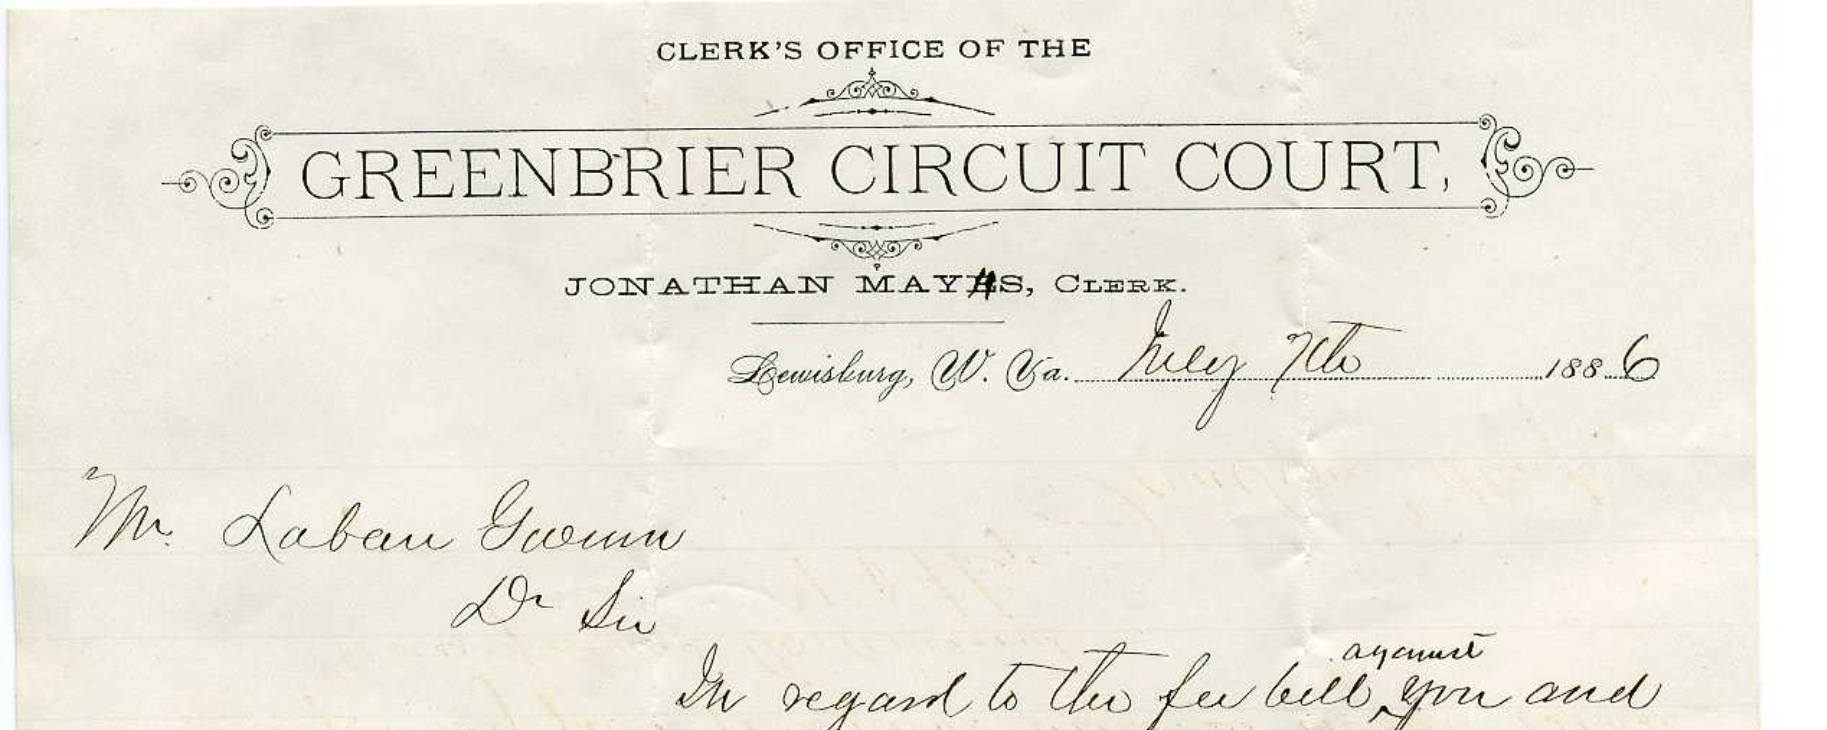 CLERK'S OFFICE OF THE
GREENBRIER CIRCUIT COURT,
JONATHAN MAYS, CLERK.
Lewisburg, W. Va. July 7th 1886
Mr. Laban Gwinn
Dr Sir
In regard to the fee bill against you and